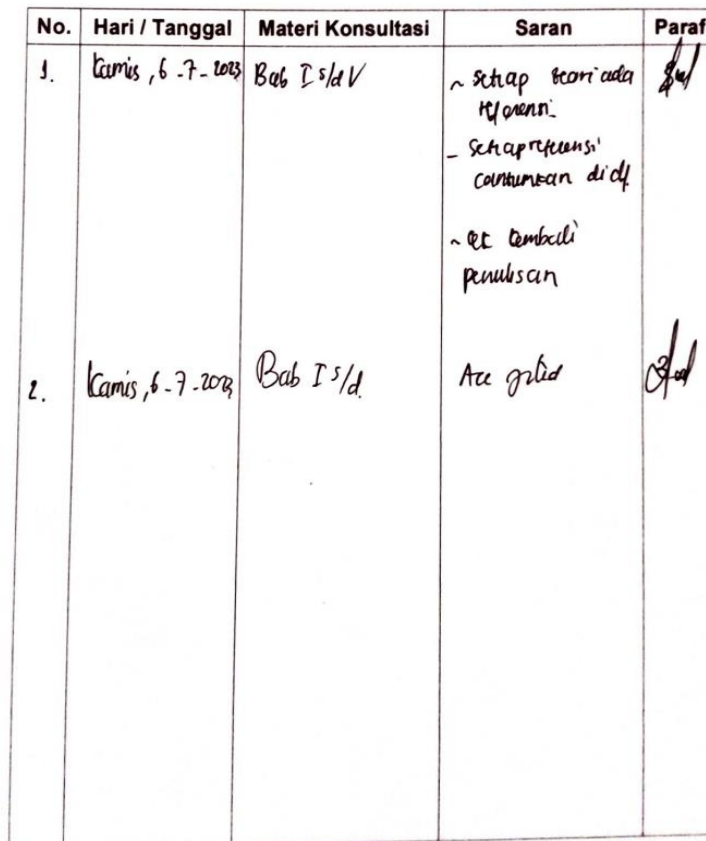 No. Hari / Tanggal Materi Konsultasi Saran Paraf
1. Kamis, 6-7-2023 Bab I s/d V ~ Setiap teori ada
referensi
- Setiap referensi
cantumkan di df.
~ cek kembali
penulisan
2. Kamis, 6-7-2023 Bab I s/d. Acc